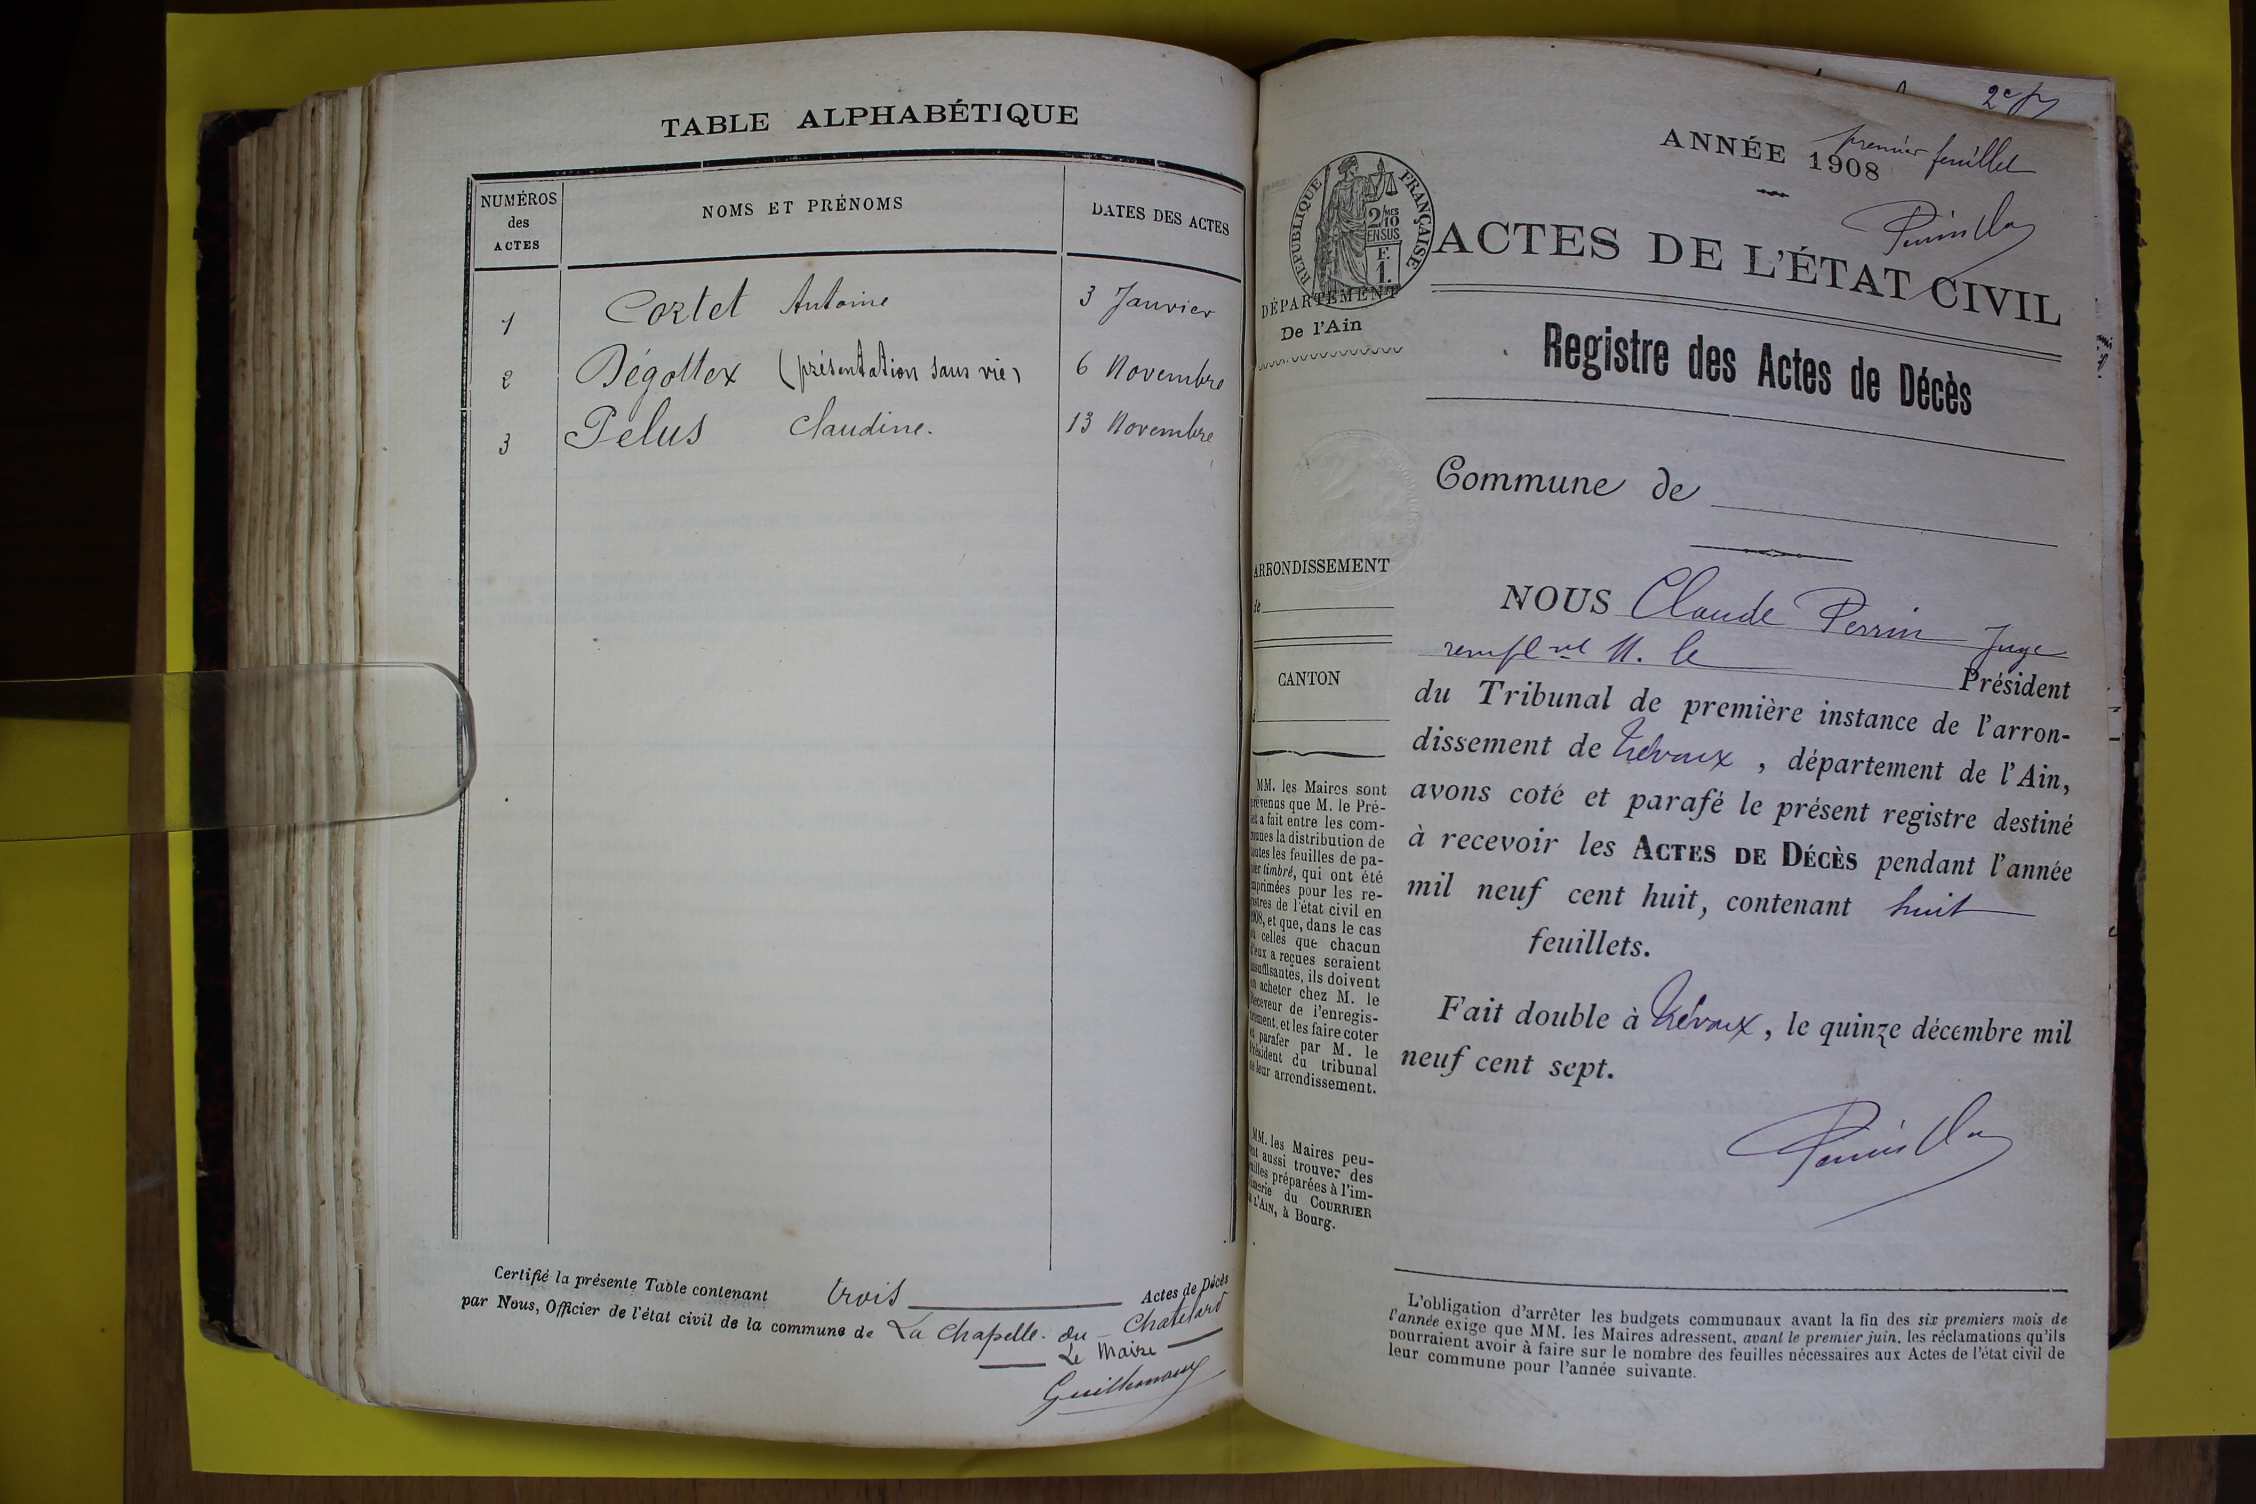 TABLE ALPHABÉTIQUE
NUMÉROS
des
ACTES
NOMS ET PRÉNOMS
DATES DES ACTES
1 Cortet Antoine 3 Janvier
2 Dégottex (présentation sans vie) 6 Novembre
3 Pelus Claudine. 13 Novembre
Certifié la présente Table contenant trois Actes de Décès
par Nous, Officier de l'état civil de la commune de La Chapelle-du-Chatelard
Le Maire
2e
premier feuillet
ANNÉE 1908
RÉPUBLIQUE FRANÇAISE
2/MES
10
EN SUS
F.
1.
ACTES DE L'ÉTAT CIVIL
DÉPARTEMENT
De l'Ain
Registre des Actes de Décès
Commune de
ARRONDISSEMENT
de
CANTON
NOUS Claude Perrin Juge
rempl nt M. le
Président
du Tribunal de première instance de l'arron-
dissement de Trévoux, département de l'Ain,
avons coté et parafé le présent registre destiné
à recevoir les ACTES DE DÉCÈS pendant l'année
mil neuf cent huit, contenant huit
feuillets.
Fait double à Trévoux, le quinze décembre mil
neuf cent sept.
MM. les Maires sont
prévenus que M. le Pré-
et a fait entre les com-
munes la distribution de
toutes les feuilles de pa-
pier timbré, qui ont été
imprimées pour les re-
gistres de l'état civil en
1908, et que, dans le cas
où celles que chacun
d'eux a reçues seraient
insuffisantes, ils doivent
en acheter chez M. le
Receveur de l'enregis-
trement, et les faire coter
et parafer par M. le
Président du tribunal
de leur arrondissement.
MM. les Maires peu-
vent aussi trouver des
feuilles préparées à l'im-
primerie du COURRIER
DE L'AIN, à Bourg.
L'obligation d'arrêter les budgets communaux avant la fin des six premiers mois de
l'année exige que MM. les Maires adressent, avant le premier juin, les réclamations qu'ils
pourraient avoir à faire sur le nombre des feuilles nécessaires aux Actes de l'état civil de
leur commune pour l'année suivante.